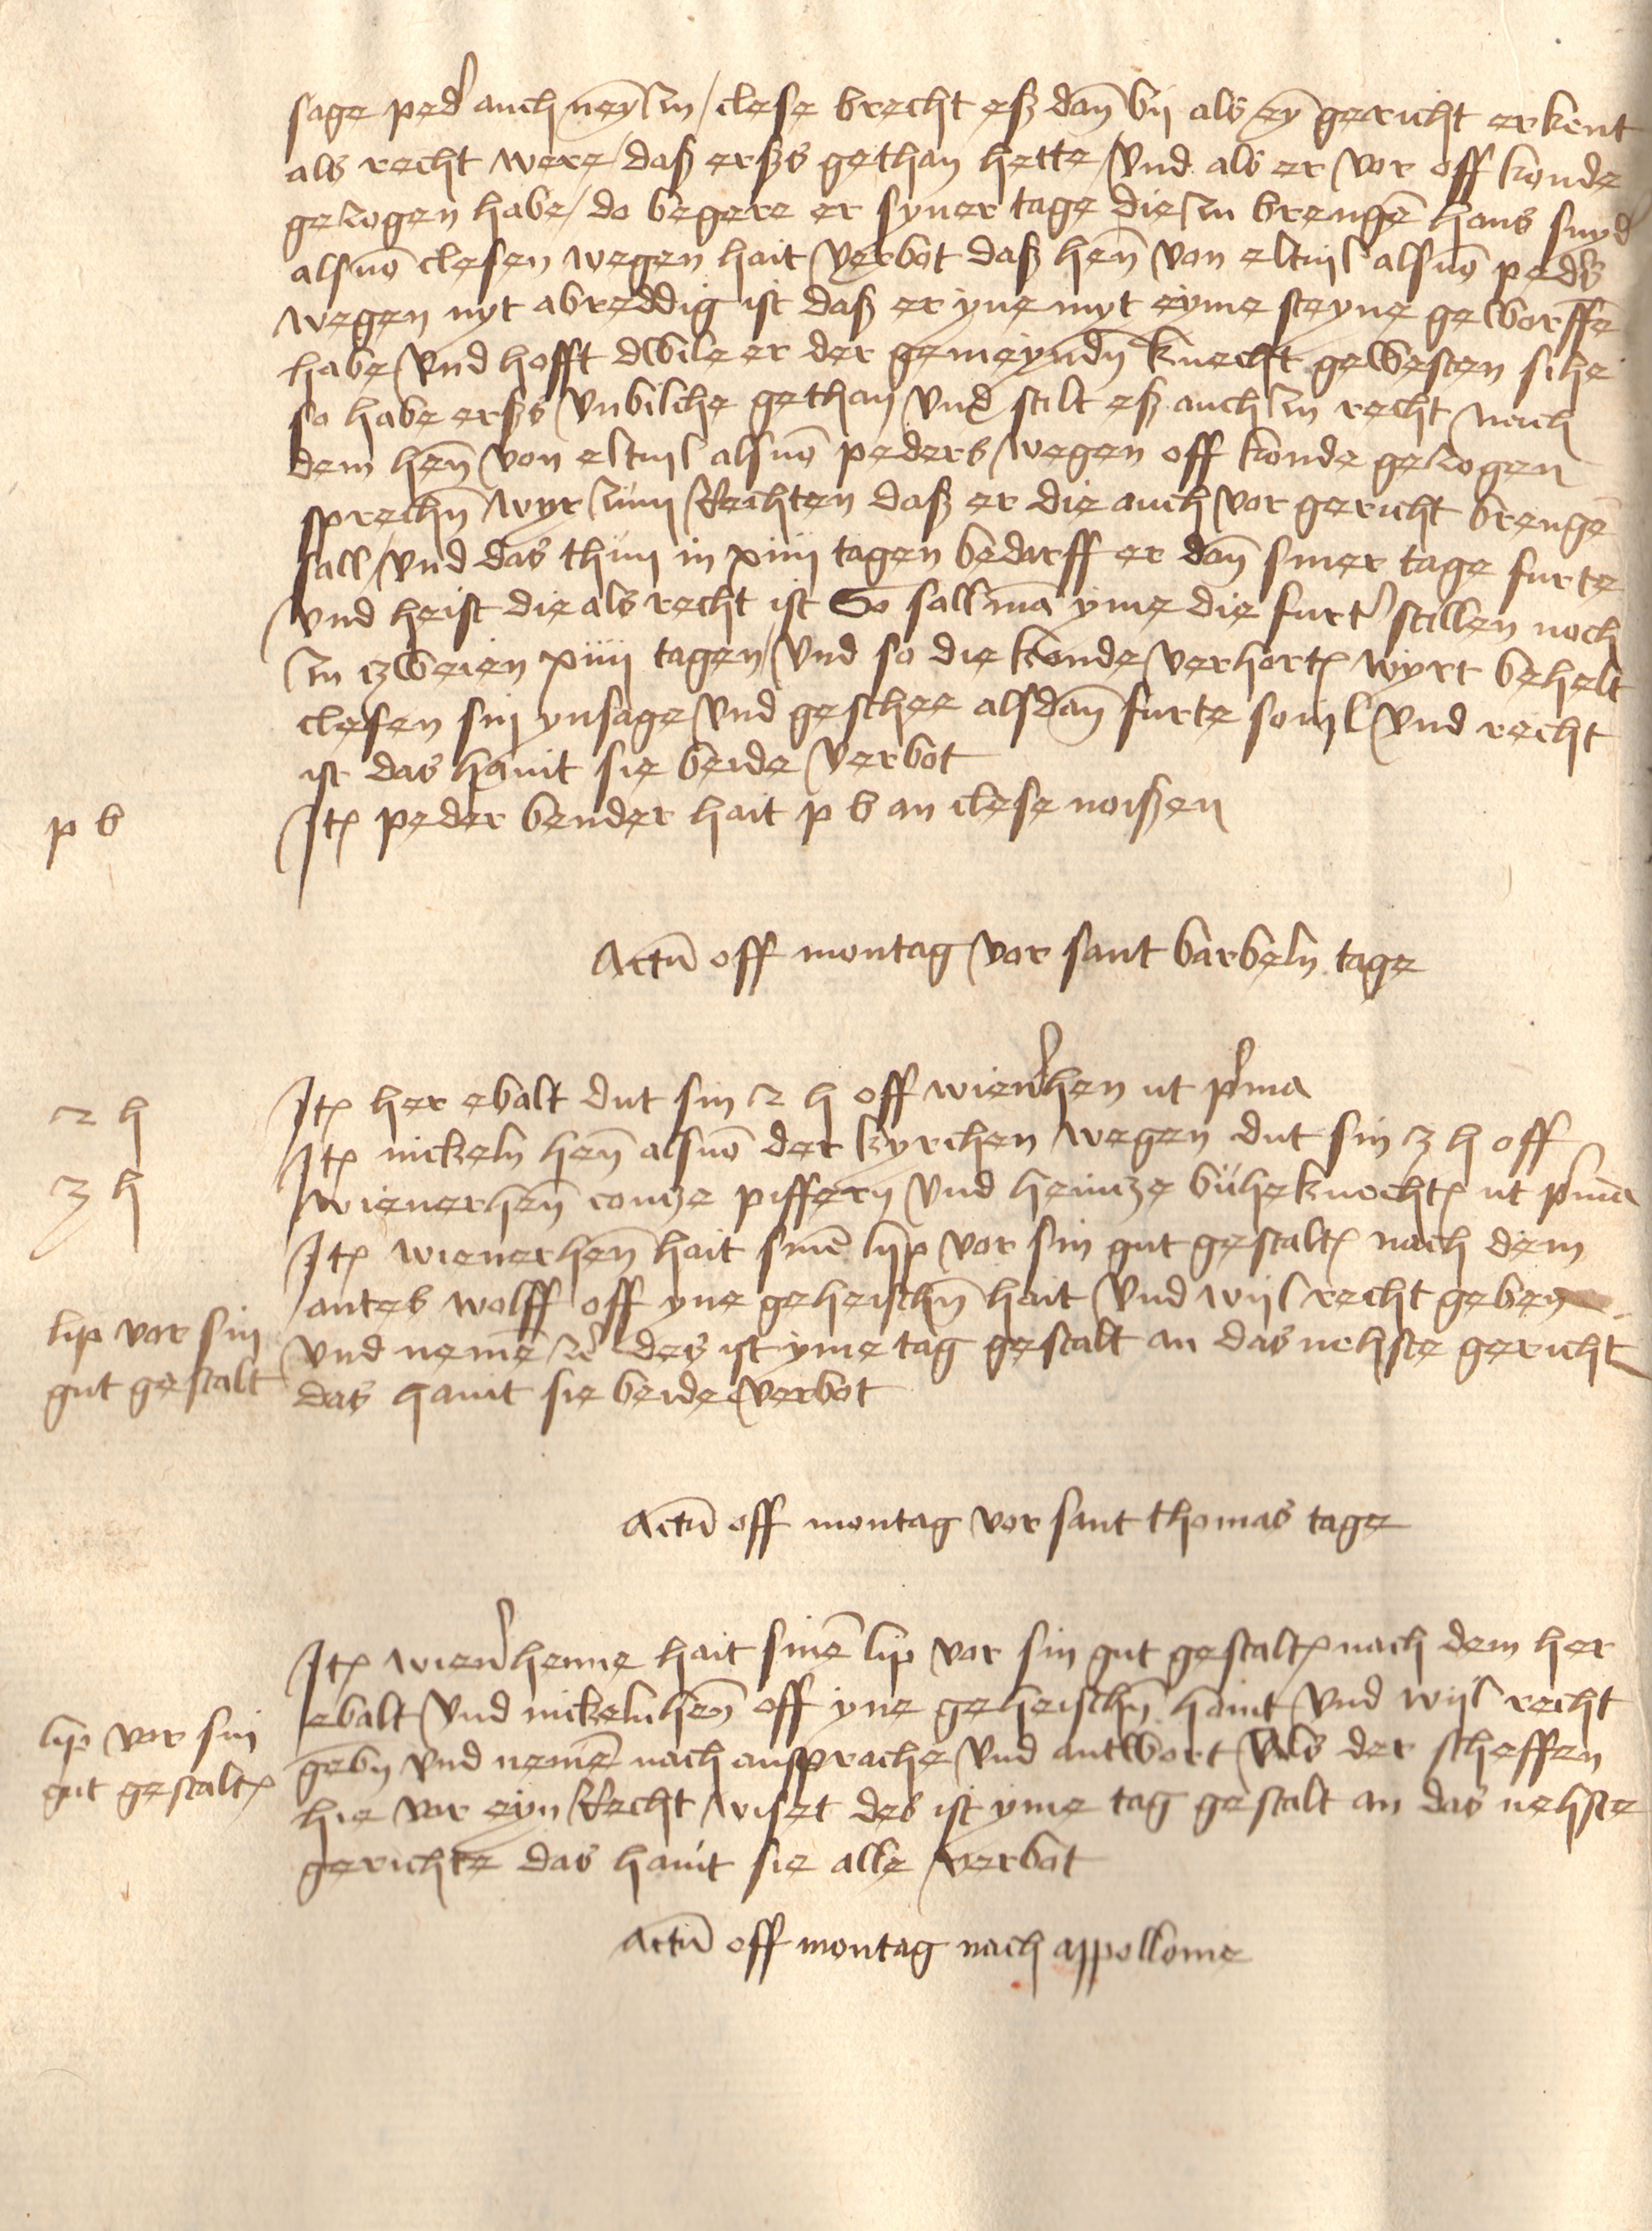 sage ped' auch neyn zu / clese brecht eß dan̄ bij als eȳ gericht erkent
als recht were / daß erßs gethan hette / vnd als er vor off konde
gezogen habe / do begere er syner tage die zu brengē hans snyd'
alsuō clesen wegen hait verbot daß hen̄ von eltuil alsuō peders
wegen nyt abreddig ist daß er yne myt eyme steyne geworffē
habe vnd hofft dwile er der gemeyndn̄ knecht gewesten sihe
so habe erßs vnbilche gethan vnd stilt eß auch zu recht nach
dem hen̄ von eltuil alsuō peders wegen off konde gezogen
sprechn̄ wyr zum Rechten daß er die auch vor gericht brengē
sall / vnd das thun in xiiij tagen bedarff er dan̄ siner tage furte
vnd heist die als recht ist So sall mā yme die furt' stellen noch
zu zweien xiiij tagen / vnd so die konde verhort wyrt behelt
clesen sin ynsage vnd geschee alsdan̄ furte souil vnd recht
ist das haint sie beide verbot
p b
Itē peder bender hait p b an clese noißen
Actū off montag vor sant barbeln tage
2 h
Itē her ebalt dut sin 2 h off wien'hen ut p'ma
3 h
Itē nickeln hen̄ alsuō der kyrchen wegen dut sin 3 h off
wienerhen̄ contze piffern vnd heintze büheknecht ut p'ma
Itē wienerhen̄ hait sinē lijp vor sin gut gestalt nach dem
antes wolff off yne geheischn̄ hait vnd wijl recht geben
lip vor sin
gut gestalt
vnd nemē 2c des ist yme tag gestalt an das nehste gericht
das haint sie beide verbot
Actū off montag vor sant thomas tage
Itē wien'henne hait sinē lip vor sin gut gestalt nach dem her
ebalt vnd nickelnhen̄ off yne geheischn̄ haint vnd wijl recht
lip vor sin
gut gestalt
gebn̄ vnd nemē nach ansprache vnd antwort Als der scheffen
hie vor eyn Recht wiset des ist yme tag gestalt an das nehste
gerichte das haint sie alle verbot
Actū off montag nach appollonie